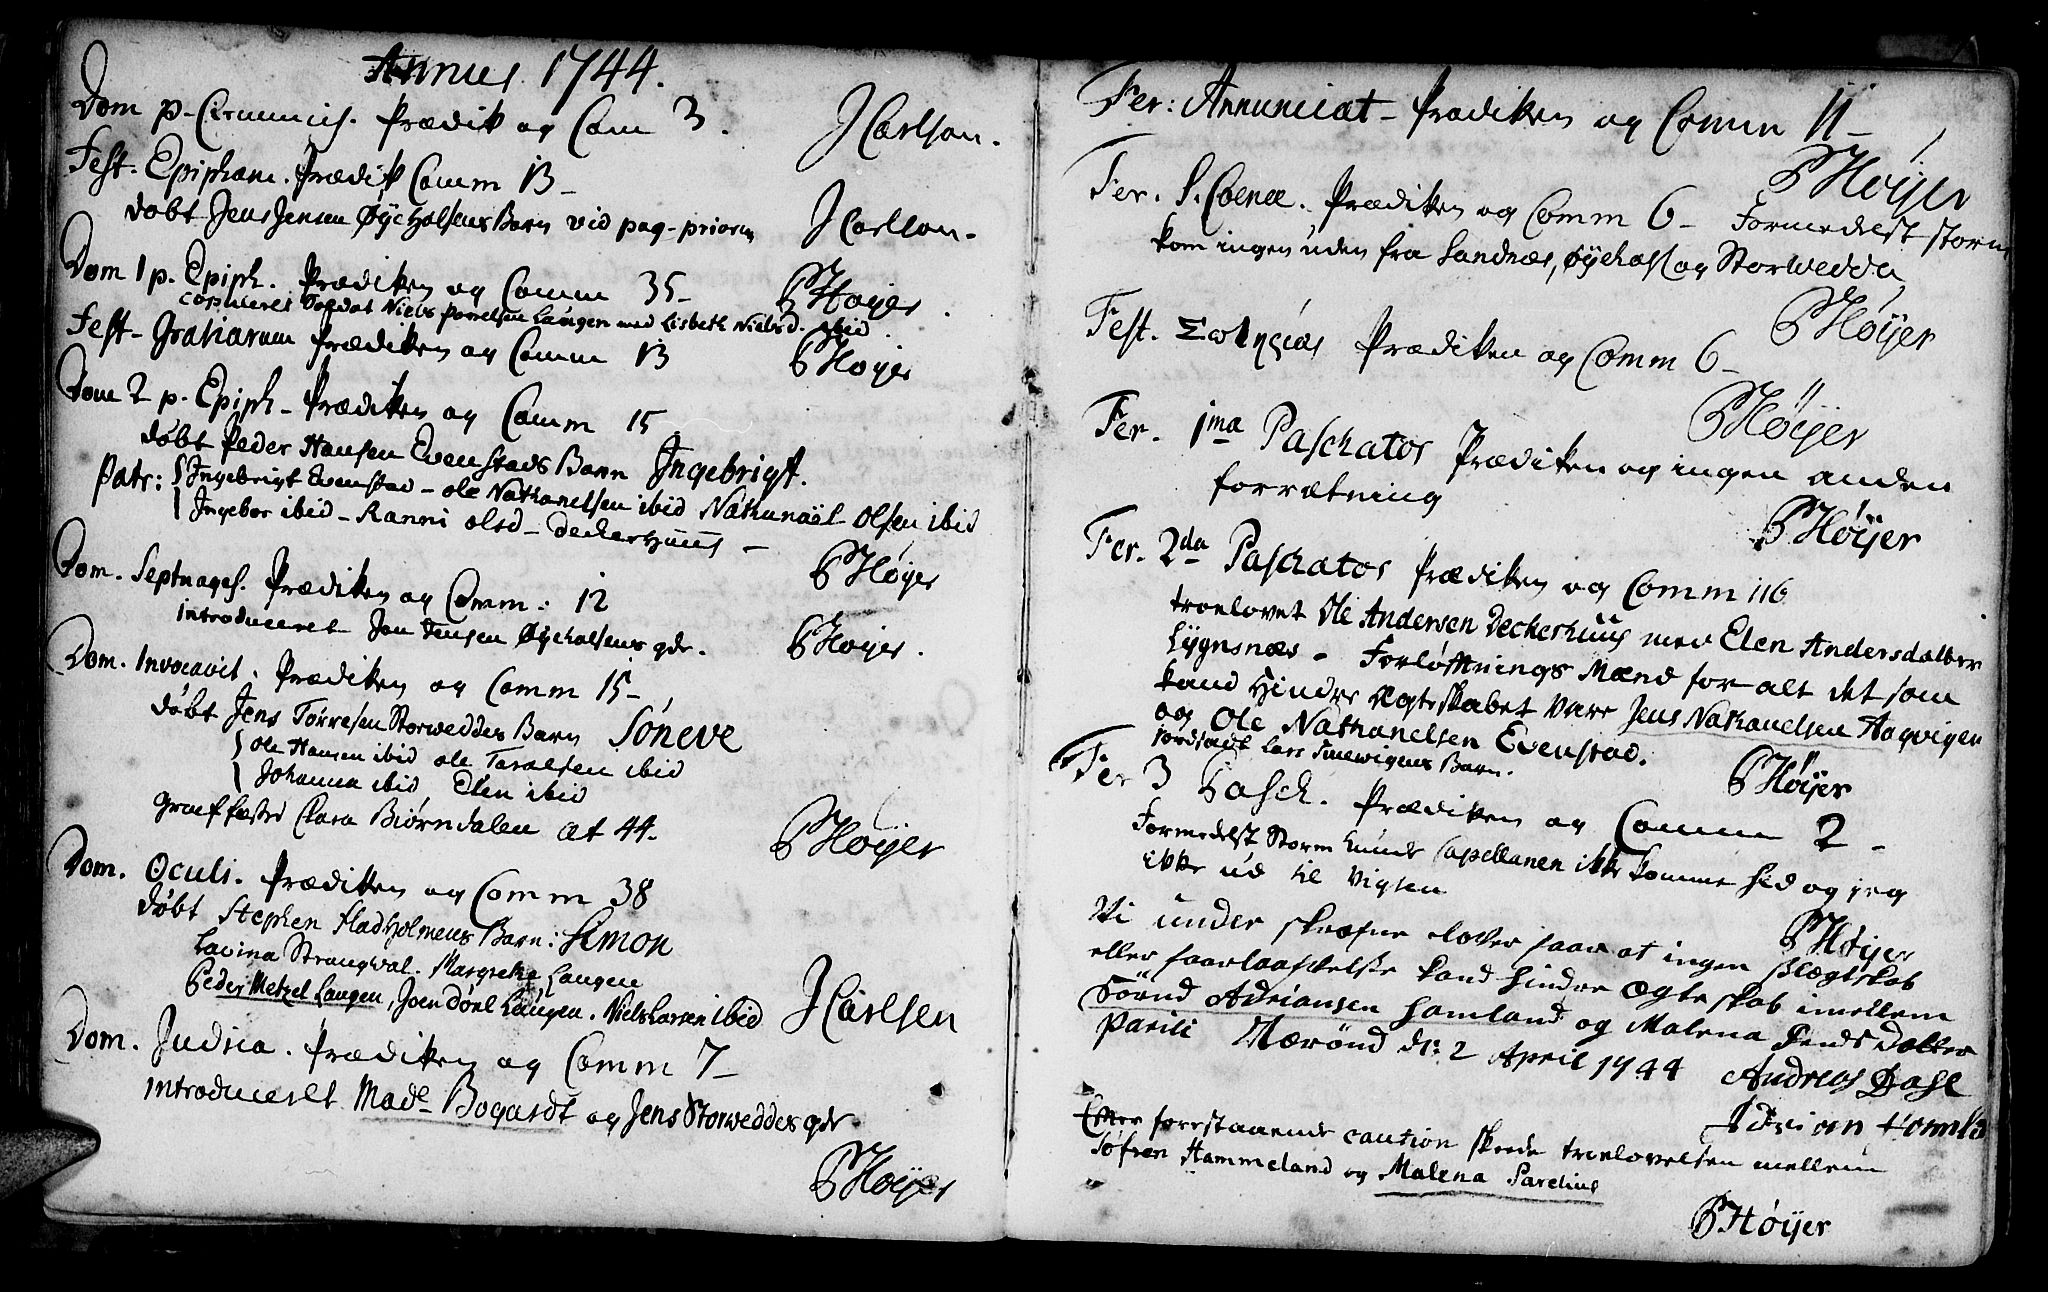 Annus 1744.
Dom p. Circumcis. Prædik og Com 3. JCarlson.
Fest. Epiphan. Prædik Comm 13 -
døbt Jens Jensen Øyeholsens Barn vid pag. prior JCarlson.
Dom 1 p. Epiph. Prædiken og Comm 35 - PHøyer
copuleret Soldat Niels Langen med Lisbeth Nielsd. ibid
Fest. Gratiarum Prædiken og Comm 13 PHøyer
Dom 2 p. Epiph. Prædiken og Comm 15
døbt Peder Hansen Evenstads Barn Ingebrigt.
Patr: Ingebrigt Evenstad - Ole Nathanelsen ibid Nathanaël Olsen ibid
Ingebor ibid - Ranni Olsd - Deckerhuus -
PHøyer
Dom. Septuages. Prædiken og Comm: 12
introduceret Jon Jensen Øyeholsens qdr. PHøyer.
Dom. Invocavit. Prædiken og Comm 15 -
døbt Jens Tørresen Storwedders Barn Søneve
Ole Hansen ibid Ole Taralsen ibid
Johanna ibid Elen ibid
Graef fæsted Clara Biørndalen æt 44. PHøyer
Dom. Oculi. Prædiken og Comm 38
døbt Stephen Fladholmens Barn: Simon
Lavina Strangwal. Margrethe Langen
Peder Metzel Langen, Joen Dørl Langen. Niels Larsen ibid JCarlsen
Dom. Judica. Prædiken og Comm 7 -
introduceret Madl Bogardt og Jens Storwedders qdr
PHøyer
Fer: Annunciat - Prædiken og Comm 11 -
PHøyer
Fer. S. Coenæ. Prædiken og Comm 6 - Formedelst storm
kom ingen uden fra Landnæs, Øyehols og Storwedda
PHøyer
Fest. Σωτηρίας Prædiken og Comm 6 -
PHøyer
Fer. 1ma Paschatos Prædiken og ingen anden
forrætning
PHøyer
Fer. 2da Paschatos Prædiken og Comm 116
troelovet Ole Andersen Deckerhuus med Elen Andersdatter
Lygnsnæs - Forløftnings Mænd for alt det som
kand Hindre Ægteskabet vare Jens Nathanelsen Aagvigen
og Ole Nathanelsen Evenstad.
Jordfæstl Lars Barn. PHøyer
Fer 3 Pasch. Prædiken og Comm 2 -
Formedelst Storm kunde Capellanen ikke komme hid og jeg
ikke ud til Vigsen
PHøyer
Vi under skrefne lover for at ingen Slægtskab
eller kand hindre Ægteskab imellem
Sörnd Adriansen Hamland og Malena Jendsdatter
Parili Nærønd d: 2 April 1744 Andreas Dahl
Adrian Hamla
Efter forestaaende caution skeede troelovelsen mellem
Søfren Hammeland og Malena Parelius
PHøyer